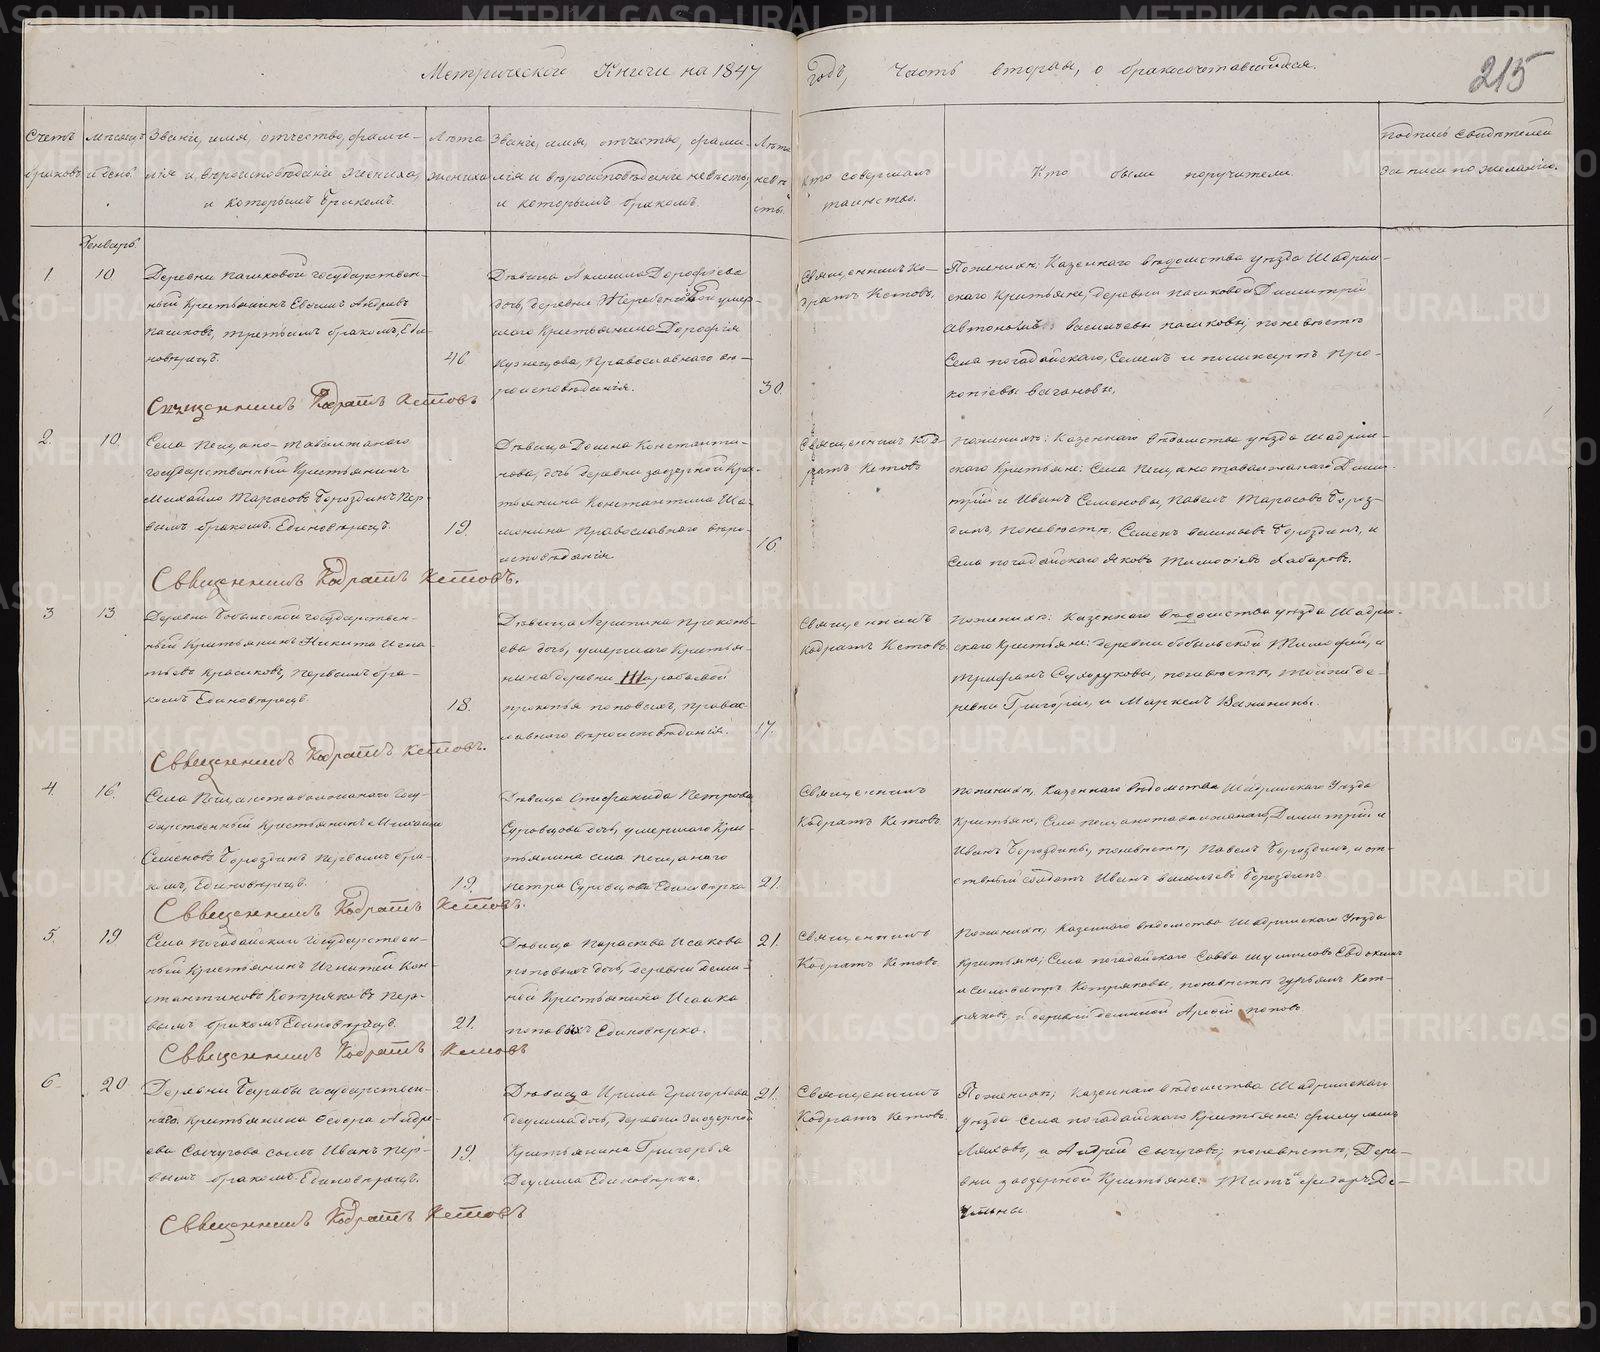 Метрической Книги на 1847 годъ, Часть вторая, о бракосочетавшихся.
215
Счетъ браковъ.
Мѣсяцъ и день.
Званіе, имя, отчество, фами-
лія и вѣроисповѣданіе жениха,
и которымъ бракомъ.
Лѣта жениха
Званіе, имя, отчество, фами-
лія и вѣроисповѣданіе невѣсты,
и которымъ бракомъ.
Лѣта невѣ-
сты.
Кто совершалъ
таинство.
Кто были поручители.
Подпись свидѣтелей
записи по желанію.
Генварь.
1
10
Деревни Пашковой государствен-
ный Крестьянинъ
Пашковъ, третьимъ бракомъ, Еди-
новѣрецъ.
46
Священникъ Кодратъ Кетовъ
Дѣвица Акилина Дорофѣева
дочь, деревни
шаго Крестьянина Дорофѣя
Кузнецова, Православнаго вѣ-
роисповѣданія.
30.
Священникъ Ко-
дратъ Кетовъ,
По женихѣ: Казеннаго вѣдомства уѣзда Шадрин-
скаго Крестьяне, деревни Пашковой Димитрій
Васильевы Пашковы; по невѣстѣ
Села Погадайскаго, Семенъ и Поликарпъ Про-
копіевы Вагановы.
2.
10.
Села Песчано-Таволжанаго
государственный Крестьянинъ
Михайло Тарасовъ Бороздинъ пер-
вымъ бракомъ. Единовѣрецъ.
19.
Священникъ Кодратъ Кетовъ.
Дѣвица Домна Константи-
нова, дочь деревни Заозерной Кре-
стьянина Константина Ша-
монина Православнаго вѣро-
исповѣданія
16.
Священникъ Код-
ратъ Кетовъ
По женихѣ: Казеннаго вѣдомства уѣзда Шадрин-
скаго Крестьяне: Села Песчанотаволжанаго Дими-
трій и Иванъ Семеновы, Павелъ Тарасовъ Бороз-
дины, по невѣстѣ, Семенъ Васильевъ Бороздинъ, и
Села Погадайскаго Яковъ Тимофѣевъ Хабаровъ.
3
13
Деревни Бобыльской государствен-
ный Крестьянинъ Никита Игна-
тьевъ Красиковъ, первымъ бра-
комъ Единовѣрецъ.
18.
Священникъ Кодратъ Кетовъ.
Дѣвица Агрипина Прокопь-
ева дочь, умершаго Крестья-
нина деревни
Прокопья Поповыхъ, Правос-
лавнаго вѣроисповѣданія.
17.
Священникъ
Кодратъ Кетовъ.
По женихѣ: Казеннаго вѣдомства уѣзда Шадрин-
скаго Крестьяне: деревни Бобыльской Тимофей, и
Трифанъ Сухоруковы, по невѣстѣ, той же де-
ревни Григорій, и Маркелъ
4.
16.
Села Песчанотаволжанаго Госу-
дарственный Крестьянинъ Михаилъ
Семеновъ Бороздинъ первымъ бра-
комъ, Единовѣрецъ.
19.
Священникъ Кодратъ Кетовъ.
Дѣвица Стефанида Петрова
Суровцова дочь, умершаго Кре-
стьянина села Песчанаго
Петра Суровцова Единовѣрка
21.
Священникъ
Кодратъ Кетовъ
По женихѣ, Казеннаго вѣдомства Шадринскаго Уѣзда
Крестьяне, Села Песчанотаволжанаго, Димитрій и
Иванъ Бороздины, по невѣстѣ, Павелъ Бороздинъ, и от-
ставный солдатъ Иванъ Васильевъ Бороздинъ
5.
19
Села Погадайскаго Государствен-
ный Крестьянинъ Игнатей Кон-
стантиновъ Котряковъ пер-
вымъ бракомъ Единовѣрецъ.
21.
Священникъ Кодратъ Кетовъ
Дѣвица Параскева Исакова
Поповыхъ дочь, деревни Деми-
ной Крестьянина Исаака
Поповыхъ Единовѣрка.
21.
Священникъ
Кодратъ Кетовъ
По женихѣ, Казеннаго вѣдомства Шадринскаго Уѣзда
Крестьяне; Села Погадайскаго Савва Шумиловъ Евдокимъ
и Селиверстъ Котряковы, по невѣстѣ Гурьянъ Кот-
ряковъ и деревни Деминой Поповъ.
6.
20
Деревни Барабы государствен-
наго Крестьянина Федора Андре-
ева Сычугова сынъ Иванъ пер-
вымъ бракомъ Единовѣрецъ.
19.
Священникъ Кодратъ Кетовъ
Дѣвица Ирина Григорьева
Деулина дочь, деревни Заозерной
Крестьянина Григорья
Деулина Единовѣрка.
21.
Священникъ
Кодратъ Кетовъ.
По женихѣ; Казеннаго вѣдомства Шадринскаго
уѣзда Села Погадайскаго Крестьяне:
и Андрей Сычуговъ; по невѣстѣ, Дере-
вни Заозерной Крестьяне: Титъ и Федоръ Де-
улины.
METRIKI.GASO-URAL.RU